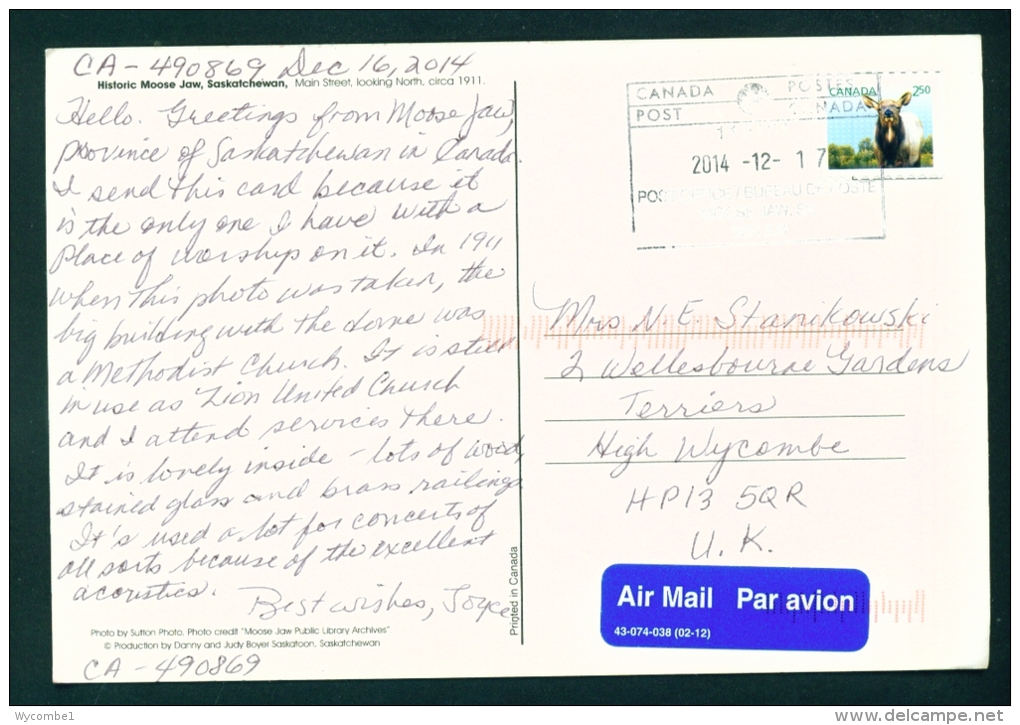 CA-490869 Dec 16, 2014
Historic Moose Jaw, Saskatchewan, Main Street, looking North, circa 1911.
Hello. Greetings from Moose Jaw,
province of Saskatchewan in Canada.
I send this card because it
is the only one I have with a
place of worship on it. In 1911
when this photo was taken, the
big building with the dome was
a Methodist Church. It is still
in use as Zion United Church
and I attend services there.
It is lovely inside - lots of wood,
stained glass and brass railings
It's used a lot for concerts of
all sorts because of the excellent
acoustics.
Best wishes, Joyce
Photo by Sutton Photo. Photo credit "Moose Jaw Public Library Archives"
© Production by Danny and Judy Boyer Saskatoon, Saskatchewan
CA-490869
Printed in Canada
CANADA POSTES
POST CANADA
2014 -12- 17
BUREAU DE POSTE
CANADA 250
Mrs N. E. Stanikowski
2 Wellesbourne Gardens
Terriers
High Wycombe
HP13 5QR
U.K.
Air Mail Par avion
43-074-038 (02-12)
Wycombe1
www.delcampe.net